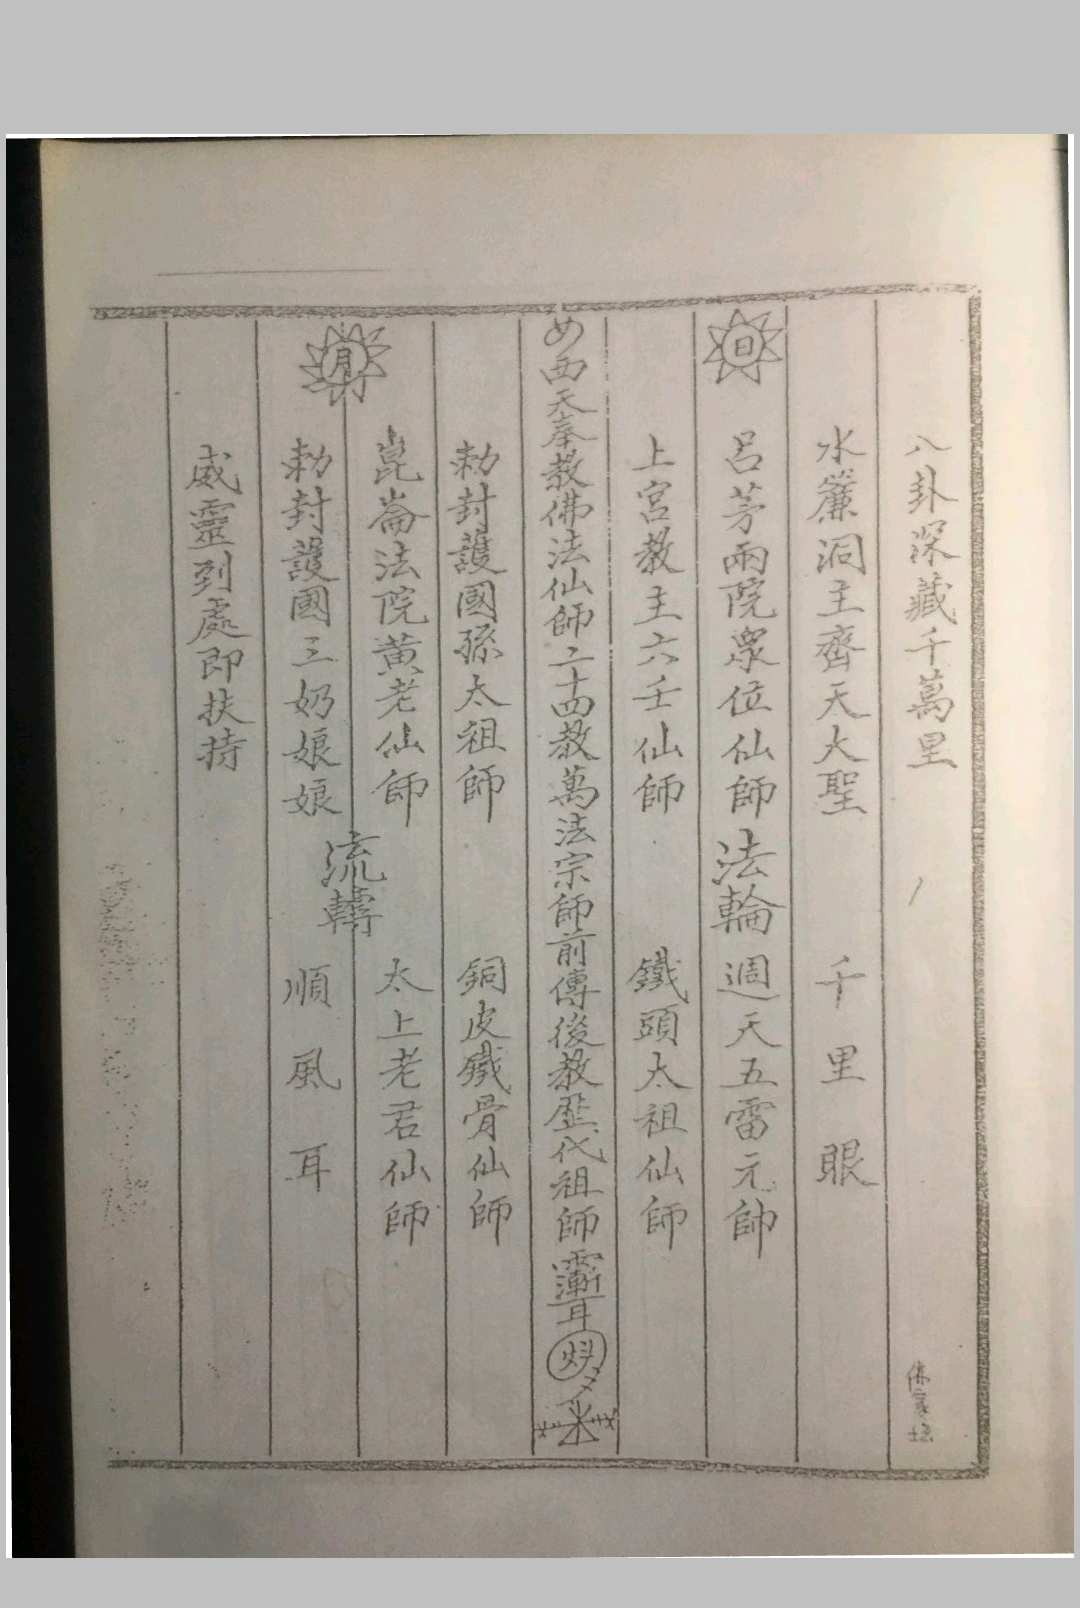 八卦深藏千萬里
佛家壇
水簾洞主齊天大聖 千里眼
日
呂茅兩院衆位仙師 週天五雷元帥
法輪
上宮教主六壬仙師 鐵頭太祖仙師
西天奉教佛法仙師二十四教萬法宗師前傳後教歷代祖師
勅封護國孫太祖師 銅皮鐵骨仙師
月
崑崙法院黃老仙師 太上老君仙師
流轉
勅封護國三奶娘娘 順風耳
威靈到處即扶持